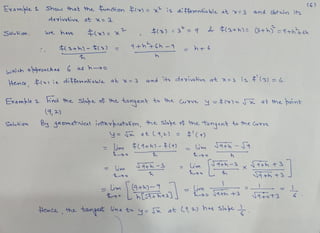 (6)
Example 1 Show that the function f(x) = x² is differentiable at x=3 and obtain its
derivative at x=3.
Solution We have f(x) = x² , f(3) = 3² = 9 & f(3+h) = (3+h)² = 9+h²+6h
∴ f(3+h) - f(3) / h = 9+h²+6h-9 / h = h+6
which approaches 6 as h→0
Hence, f(x) is differentiable at x=3 and its derivative at x=3 is f'(3) = 6
Example 2 Find the slope of the tangent to the curve y = f(x) = √x at the point
(9,3)
Solution By geometrical interpretation, the slope of the tangent to the curve
y = √x at (9,3) = f'(9)
= lim h→0 f(9+h) - f(9) / h = lim h→0 √9+h - √9 / h
= lim h→0 √9+h - 3 / h = lim h→0 [√9+h - 3 / h × √9+h + 3 / √9+h + 3]
= lim h→0 [(9+h)-9 / h[√9+h+3]] = lim h→0 1 / √9+h +3 = 1 / √9+3 = 1/6
Hence, the tangent line to y = √x at (9,3) has slope 1/6.